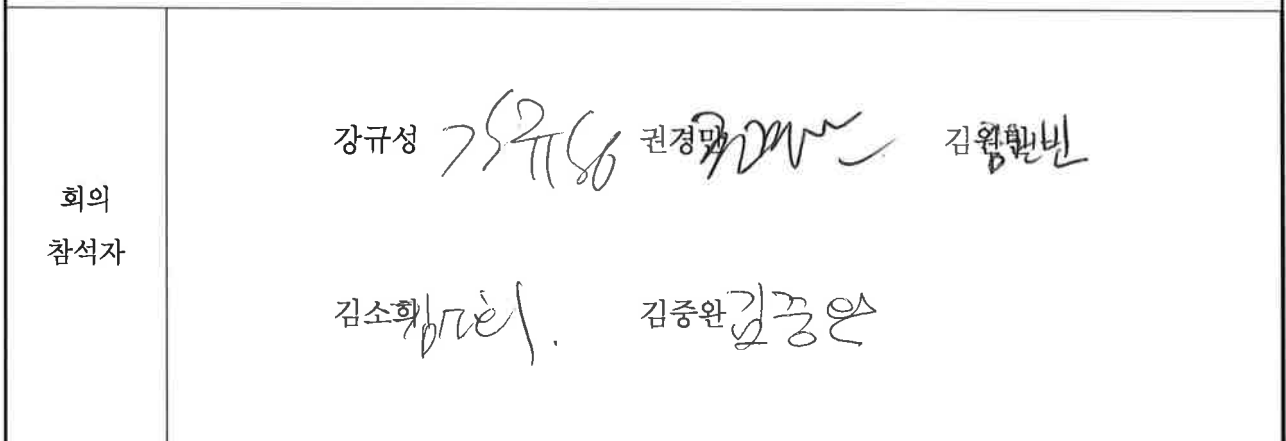 회의
참석자
강규성 강규성 권경만 김원빈
김소희 김소희 김중완 김중완